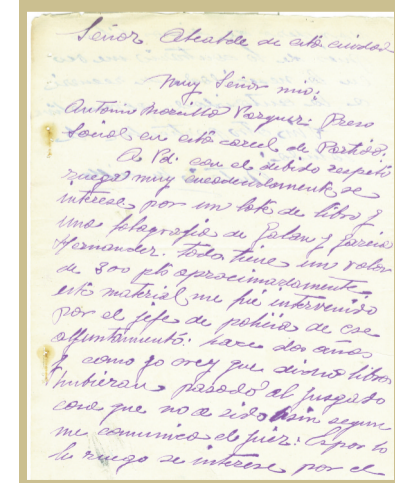 Señor Alcalde de esta ciudad
Muy Señor mio:
Antonio Morcillo Vazquez: Preso
Social en esta carcel de Partido:
A Vd: con el debido respeto
ruega muy encarecidamente se
interese por un lote de libros y
una fotografia de Galan y Garcia
Hernandez. todo tiene un valor
de 300 pts aprocsimadamente
este material me fue intervenido
por el jefe de policia de ese
alluntamientó: hace dos años
y como yo crey que dicho libros
hubieran pasado al jusgado
cosa que no a sido asin segun
me comunica el juez: Es por lo
le ruego se interese por el